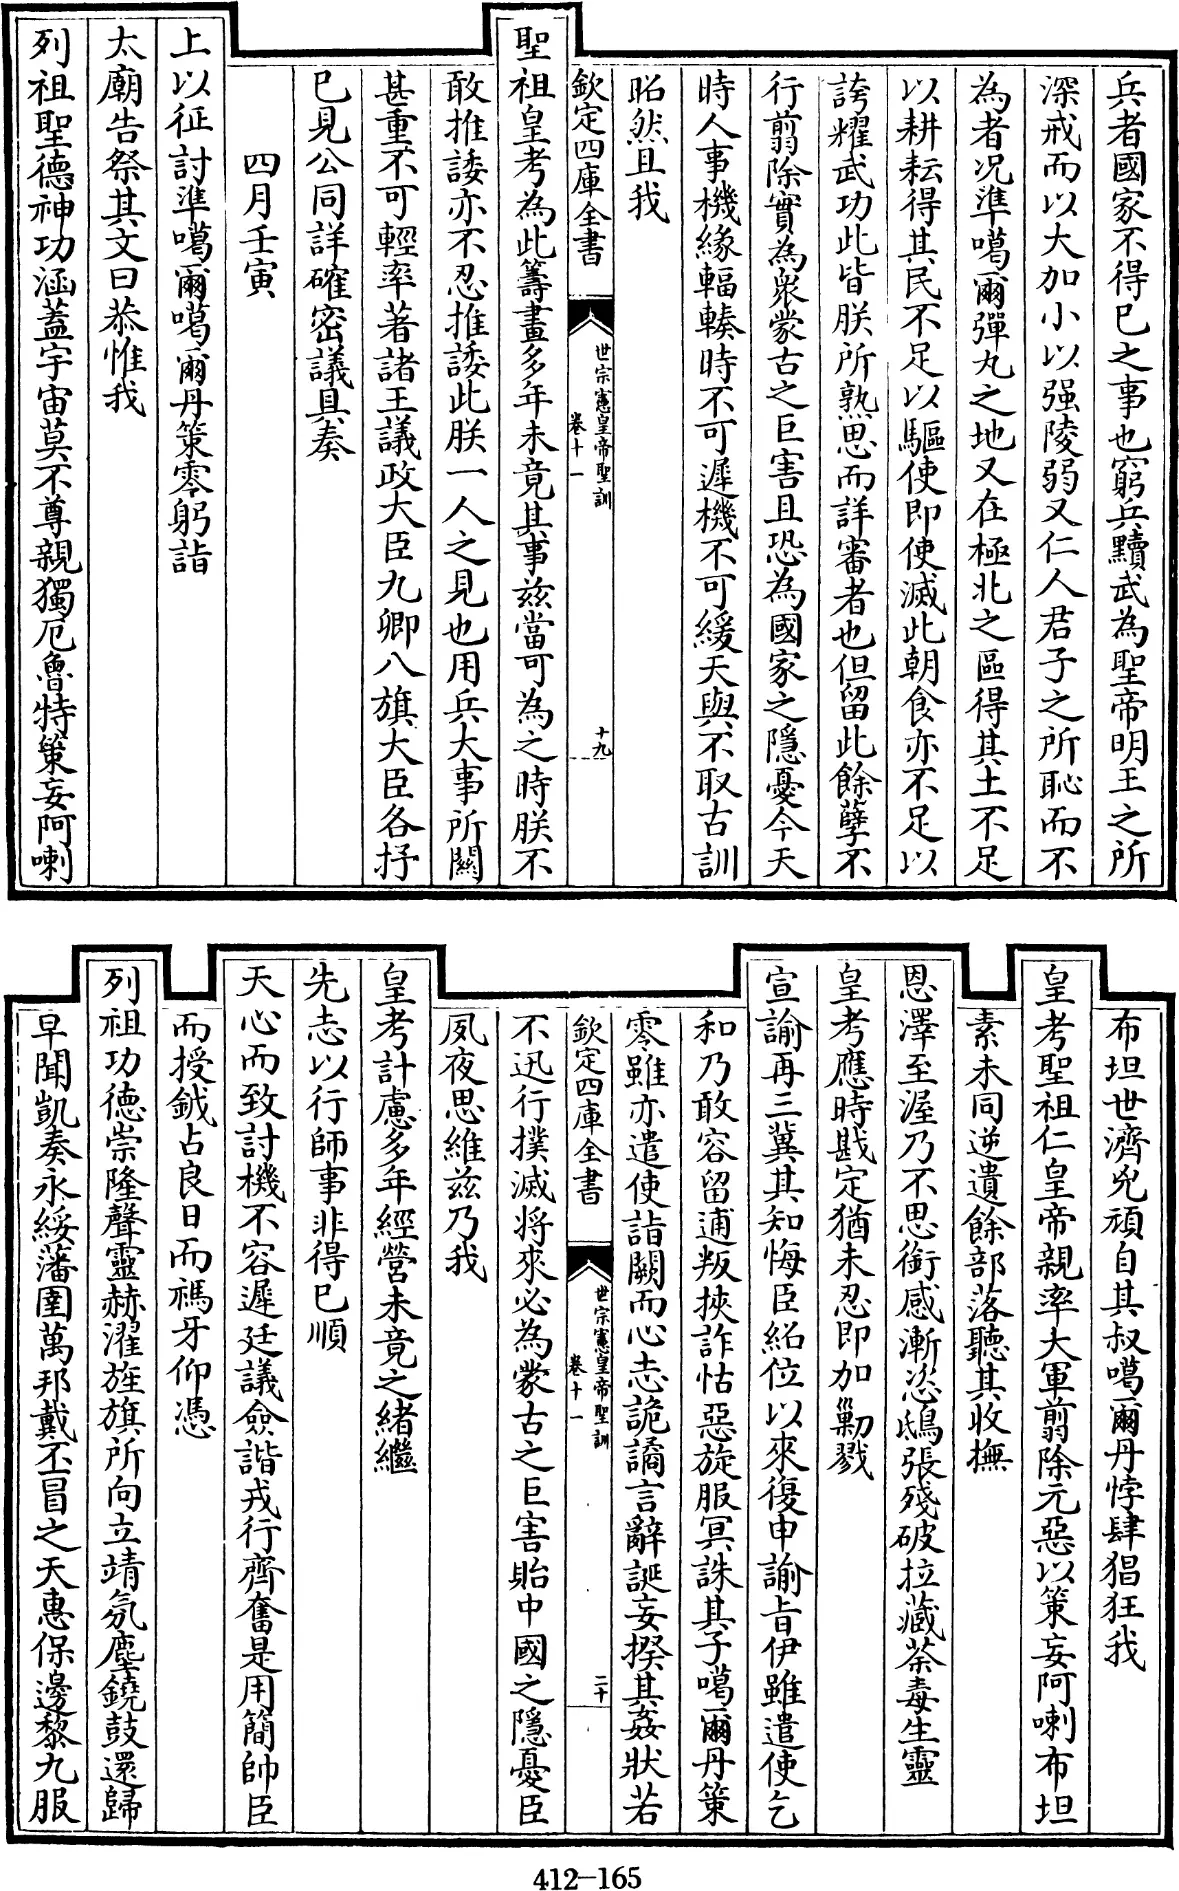 兵者國家不得已之事也窮兵黷武為聖帝明王之所
深戒而以大加小以强陵弱又仁人君子之所恥而不
為者況準噶爾彈丸之地又在極北之區得其土不足
以耕耘得其民不足以驅使即使滅此朝食亦不足以
誇耀武功此皆朕所熟思而詳審者也但留此餘孽不
行翦除實為衆蒙古之巨害且恐為國家之隱憂今天
時人事機緣輻輳時不可遲機不可緩天與不取古訓
昭然且我
欽定四庫全書
世宗憲皇帝聖訓
卷十一
十九
聖祖皇考為此籌畫多年未竟其事兹當可為之時朕不
敢推諉亦不忍推諉此朕一人之見也用兵大事所關
甚重不可輕率著諸王議政大臣九卿八旗大臣各抒
已見公同詳確密議具奏
四月壬寅
上以征討準噶爾噶爾丹策零躬詣
太廟告祭其文曰恭惟我
列祖聖德神功涵蓋宇宙莫不尊親獨厄魯特策妄阿喇
布坦世濟兇頑自其叔噶爾丹悖肆猖狂我
皇考聖祖仁皇帝親率大軍翦除元惡以策妄阿喇布坦
素未同逆遺餘部落聽其收撫
恩澤至渥乃不思銜感漸恣鴟張殘破拉藏荼毒生靈
皇考應時戡定猶未忍即加勦戮
宣諭再三冀其知悔臣紹位以來復申諭旨伊雖遣使乞
和乃敢容留逋叛挾詐怙惡旋服冥誅其子噶爾丹策
零雖亦遣使詣闕而心志詭譎言辭誕妄揆其姦狀若
欽定四庫全書
世宗憲皇帝聖訓
卷十一
二十
不迅行撲滅将來必為蒙古之巨害貽中國之隱憂臣
夙夜思維兹乃我
皇考計慮多年經營未竟之緒繼
先志以行師事非得已順
天心而致討機不容遲廷議僉諧戎行齊奮是用簡帥臣
而授鉞占良日而禡牙仰憑
列祖功德崇隆聲靈赫濯旌旗所向立靖氛塵鐃鼓還歸
早聞凱奏永綏藩圉萬邦戴丕冒之天惠保邊黎九服
412-165